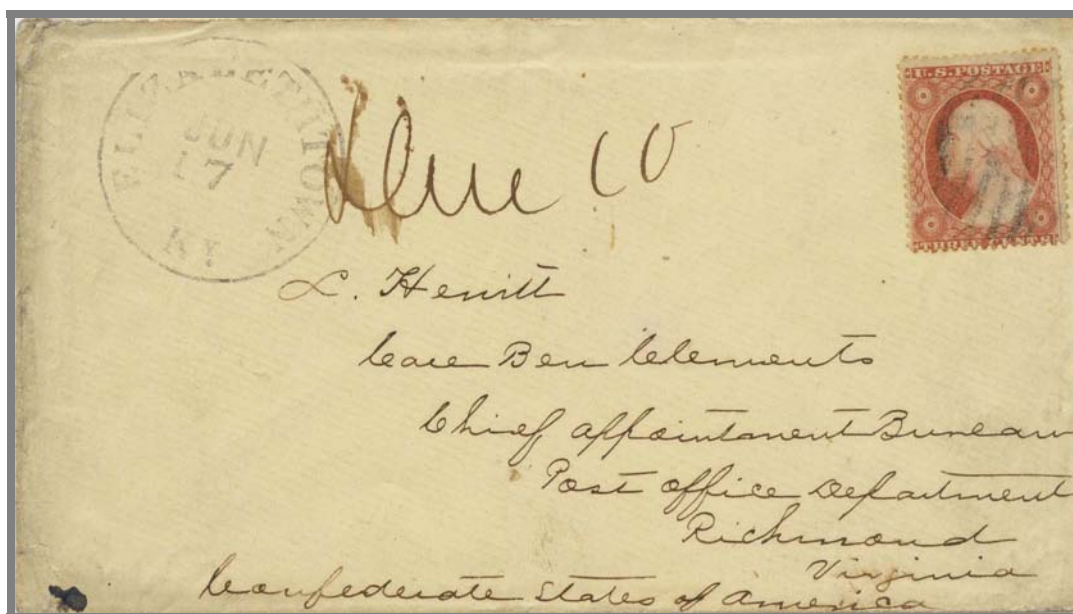 ELIZABETHTOWN
JUN
17
KY
U.S. POSTAGE
THREE CENTS
Due 10
L. Hewitt
Care Ben Clements
Chief appointment Bureau
Post office Department
Richmond
Virginia
Confederate States of America